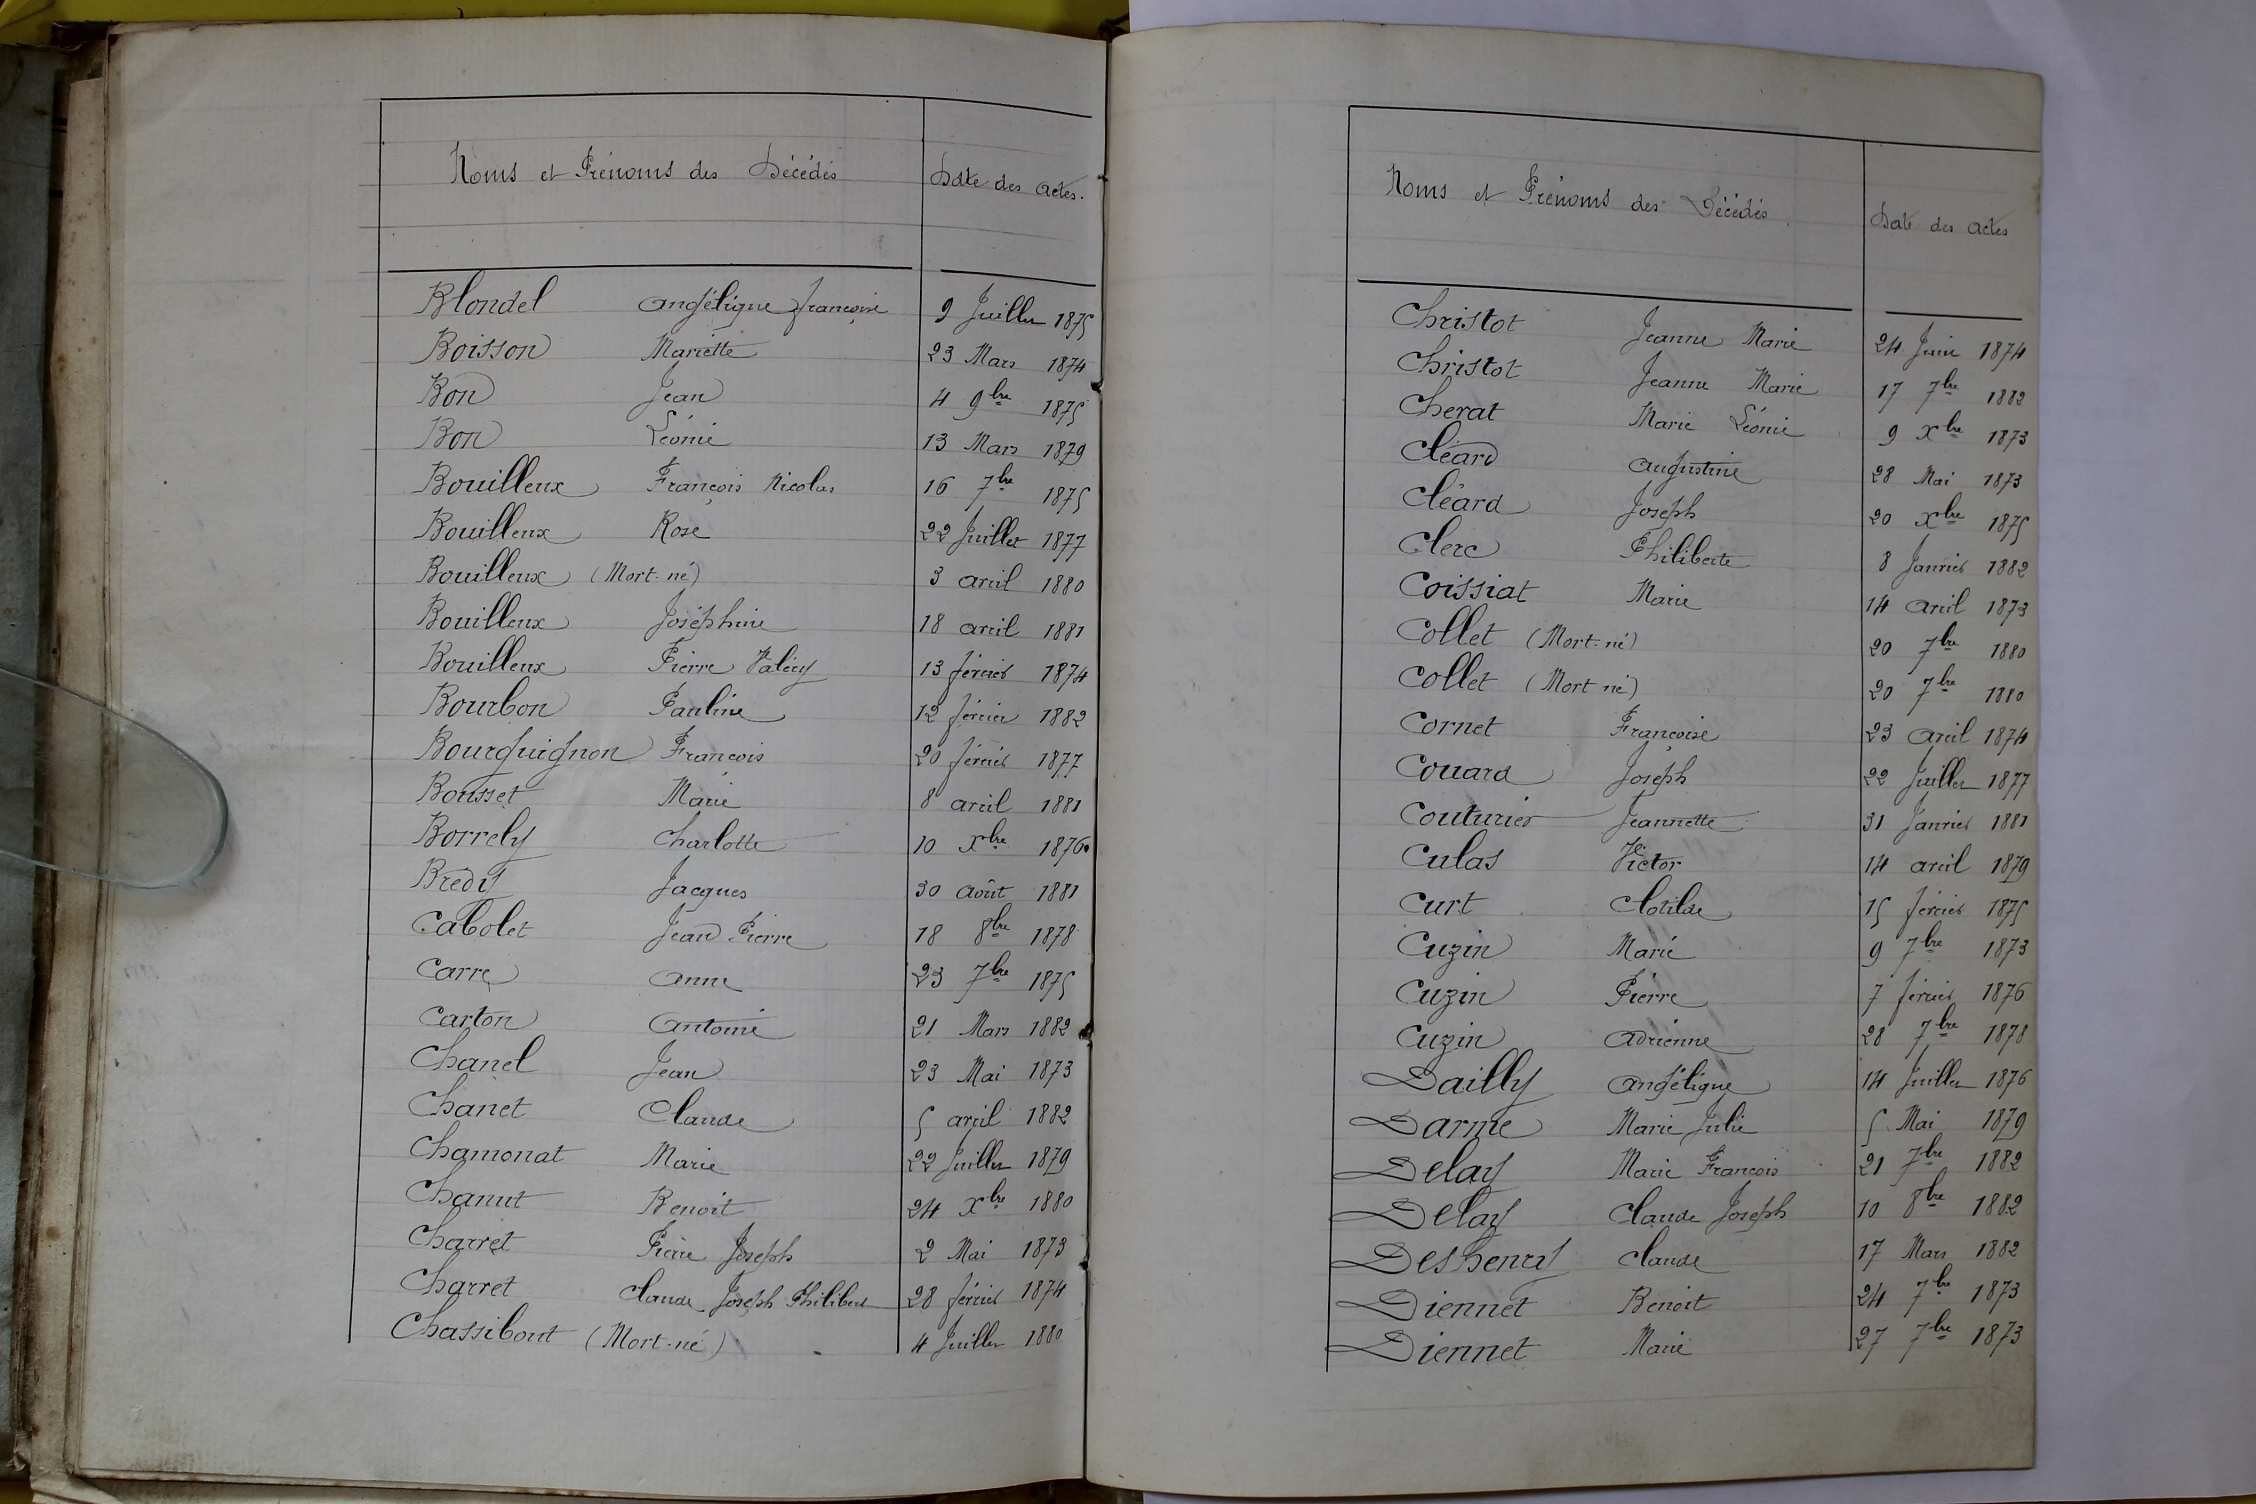 Noms et Prénoms des Décédés Date des Actes.
Blondel Angélique Françoise 9 Juillet 1875
Boisson Mariette 23 Mars 1874
Bon Jean 4 9bre 1875
Bon Léonie 13 Mars 1879
Bouilleux François Nicolas 16 7bre 1875
Bouilleux Rose 22 Juillet 1877
Bouilleux (Mort-né) 3 avril 1880
Bouilleux Joséphine 18 avril 1881
Bouilleux Pierre Valéry 13 février 1874
Bourbon Pauline 12 février 1882
Bourguignon François 20 février 1877
Bousset Marie 8 avril 1881
Borrely Charlotte 10 Xbre 1876
Bredy Jacques 30 août 1881
Cabolet Jean Pierre 18 8bre 1878
Carre Anne 23 7bre 1875
Carton Antoine 21 Mars 1882
Chanel Jean 23 Mai 1873
Chanet Claude 5 avril 1882
Chamonat Marie 22 Juillet 1879
Chanut Benoit 24 Xbre 1880
Charret Pierre Joseph 2 Mai 1873
Charret Claude Joseph Philibert 28 février 1874
Chassibout (Mort-né) 4 Juillet 1880
Noms et Prénoms des Décédés Date des Actes
Christot Jeanne Marie 24 Juin 1874
Christot Jeanne Marie 17 7bre 1882
Cherat Marie Léonie 9 Xbre 1873
Cléard Augustine 28 Mai 1873
Cléard Joseph 20 Xbre 1875
Clerc Philiberte 8 Janvier 1882
Coissiat Marie 14 avril 1873
Collet (Mort-né) 20 7bre 1880
Collet (Mort né) 20 7bre 1880
Cornet Françoise 23 avril 1874
Couard Joseph 22 Juillet 1877
Couturier Jeannette 31 Janvier 1881
Culas Victor 14 avril 1879
Curt Clotilde 15 février 1875
Cuzin Marie 9 7bre 1873
Cuzin Pierre 7 février 1876
Cuzin Adrienne 28 7bre 1878
Dailly Angélique 14 Juillet 1876
Darme Marie Julie 5 Mai 1879
Delay Marie François 21 7bre 1882
Delay Claude Joseph 10 8bre 1882
Deshenry Claude 17 Mars 1882
Diennet Benoit 24 7bre 1873
Diennet Marie 27 7bre 1873